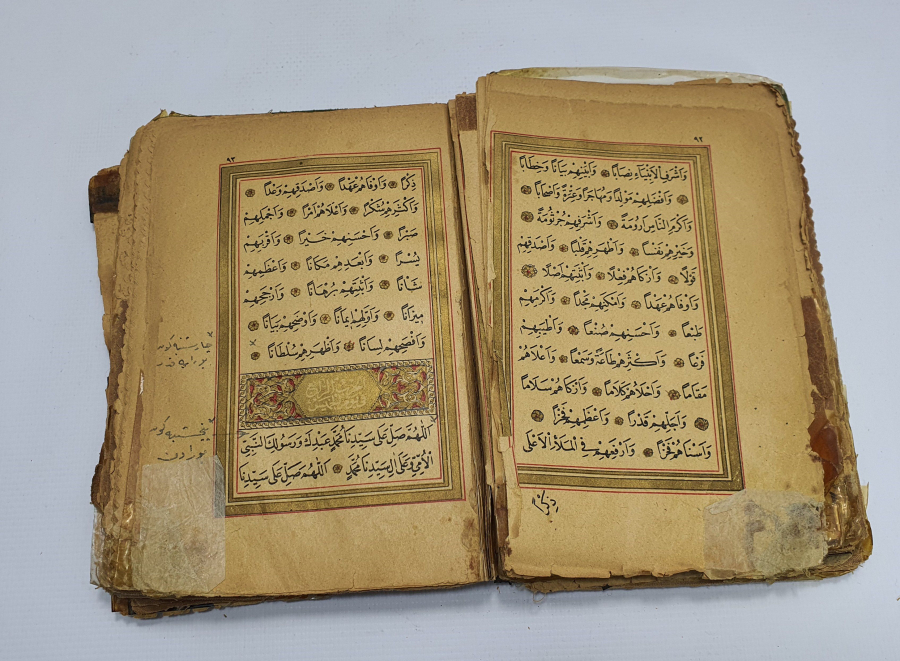 ٩٢
وَاَشْرَفِ الْاَنْبِيَاءِ نِصَابًا وَاَبْيَنِهِمْ بَيَانًا وَخِطَابًا
وَاَفْضَلِهِمْ مَوْلِدًا وَمُهَاجَرًا وَعِتْرَةً وَاَصْحَابًا
وَاَكْرَمِ النَّاسِ اَرُومَةً وَاَشْرَفِهِمْ جُرْثُومَةً
وَخَيْرِهِمْ نَفْسًا وَاَطْهَرِهِمْ قَلْبًا وَاَصْدَقِهِمْ
قَوْلًا وَاَزْكَاهُمْ فِعْلًا وَاَثْبَتِهِمْ اَصْلًا
وَاَوْفَاهُمْ عَهْدًا وَاَمْكَنِهِمْ مَجْدًا وَاَكْرَمِهِمْ
طَبْعًا وَاَحْسَنِهِمْ صُنْعًا وَاَطْيَبِهِمْ
فَرْعًا وَاَكْثَرِهِمْ طَاعَةً وَسَمْعًا وَاَعْلَاهُمْ
مَقَامًا وَاَحْلَاهُمْ كَلَامًا وَاَزْكَاهُمْ سَلَامًا
وَاَجَلِّهِمْ قَدْرًا وَاَعْظَمِهِمْ فَخْرًا
وَاَسْنَاهُمْ فَخْرًا وَاَرْفَعِهِمْ فِي الْمَلَاِ الْاَعْلٰى
ذِكْرًا
٩٣
ذِكْرًا وَاَوْفَاهُمْ عَهْدًا وَاَصْدَقِهِمْ وَعْدًا
وَاَكْثَرِهِمْ شُكْرًا وَاَعْلَاهُمْ اَمْرًا وَاَجْمَلِهِمْ
صَبْرًا وَاَحْسَنِهِمْ خَيْرًا وَاَقْرَبِهِمْ
يُسْرًا وَاَبْعَدِهِمْ مَكَانًا وَاَعْظَمِهِمْ
شَانًا وَاَثْبَتِهِمْ بُرْهَانًا وَاَرْجَحِهِمْ
مِيزَانًا وَاَوَّلِهِمْ اِيمَانًا وَاَوْضَحِهِمْ بَيَانًا
وَاَفْصَحِهِمْ لِسَانًا وَاَظْهَرِهِمْ سُلْطَانًا
اَللّٰهُمَّ صَلِّ عَلٰى سَيِّدِنَا مُحَمَّدٍ عَبْدِكَ وَرَسُولِكَ النَّبِيِّ
الْاُمِّيِّ وَعَلٰى اٰلِ سَيِّدِنَا مُحَمَّدٍ اَللّٰهُمَّ صَلِّ عَلٰى سَيِّدِنَا